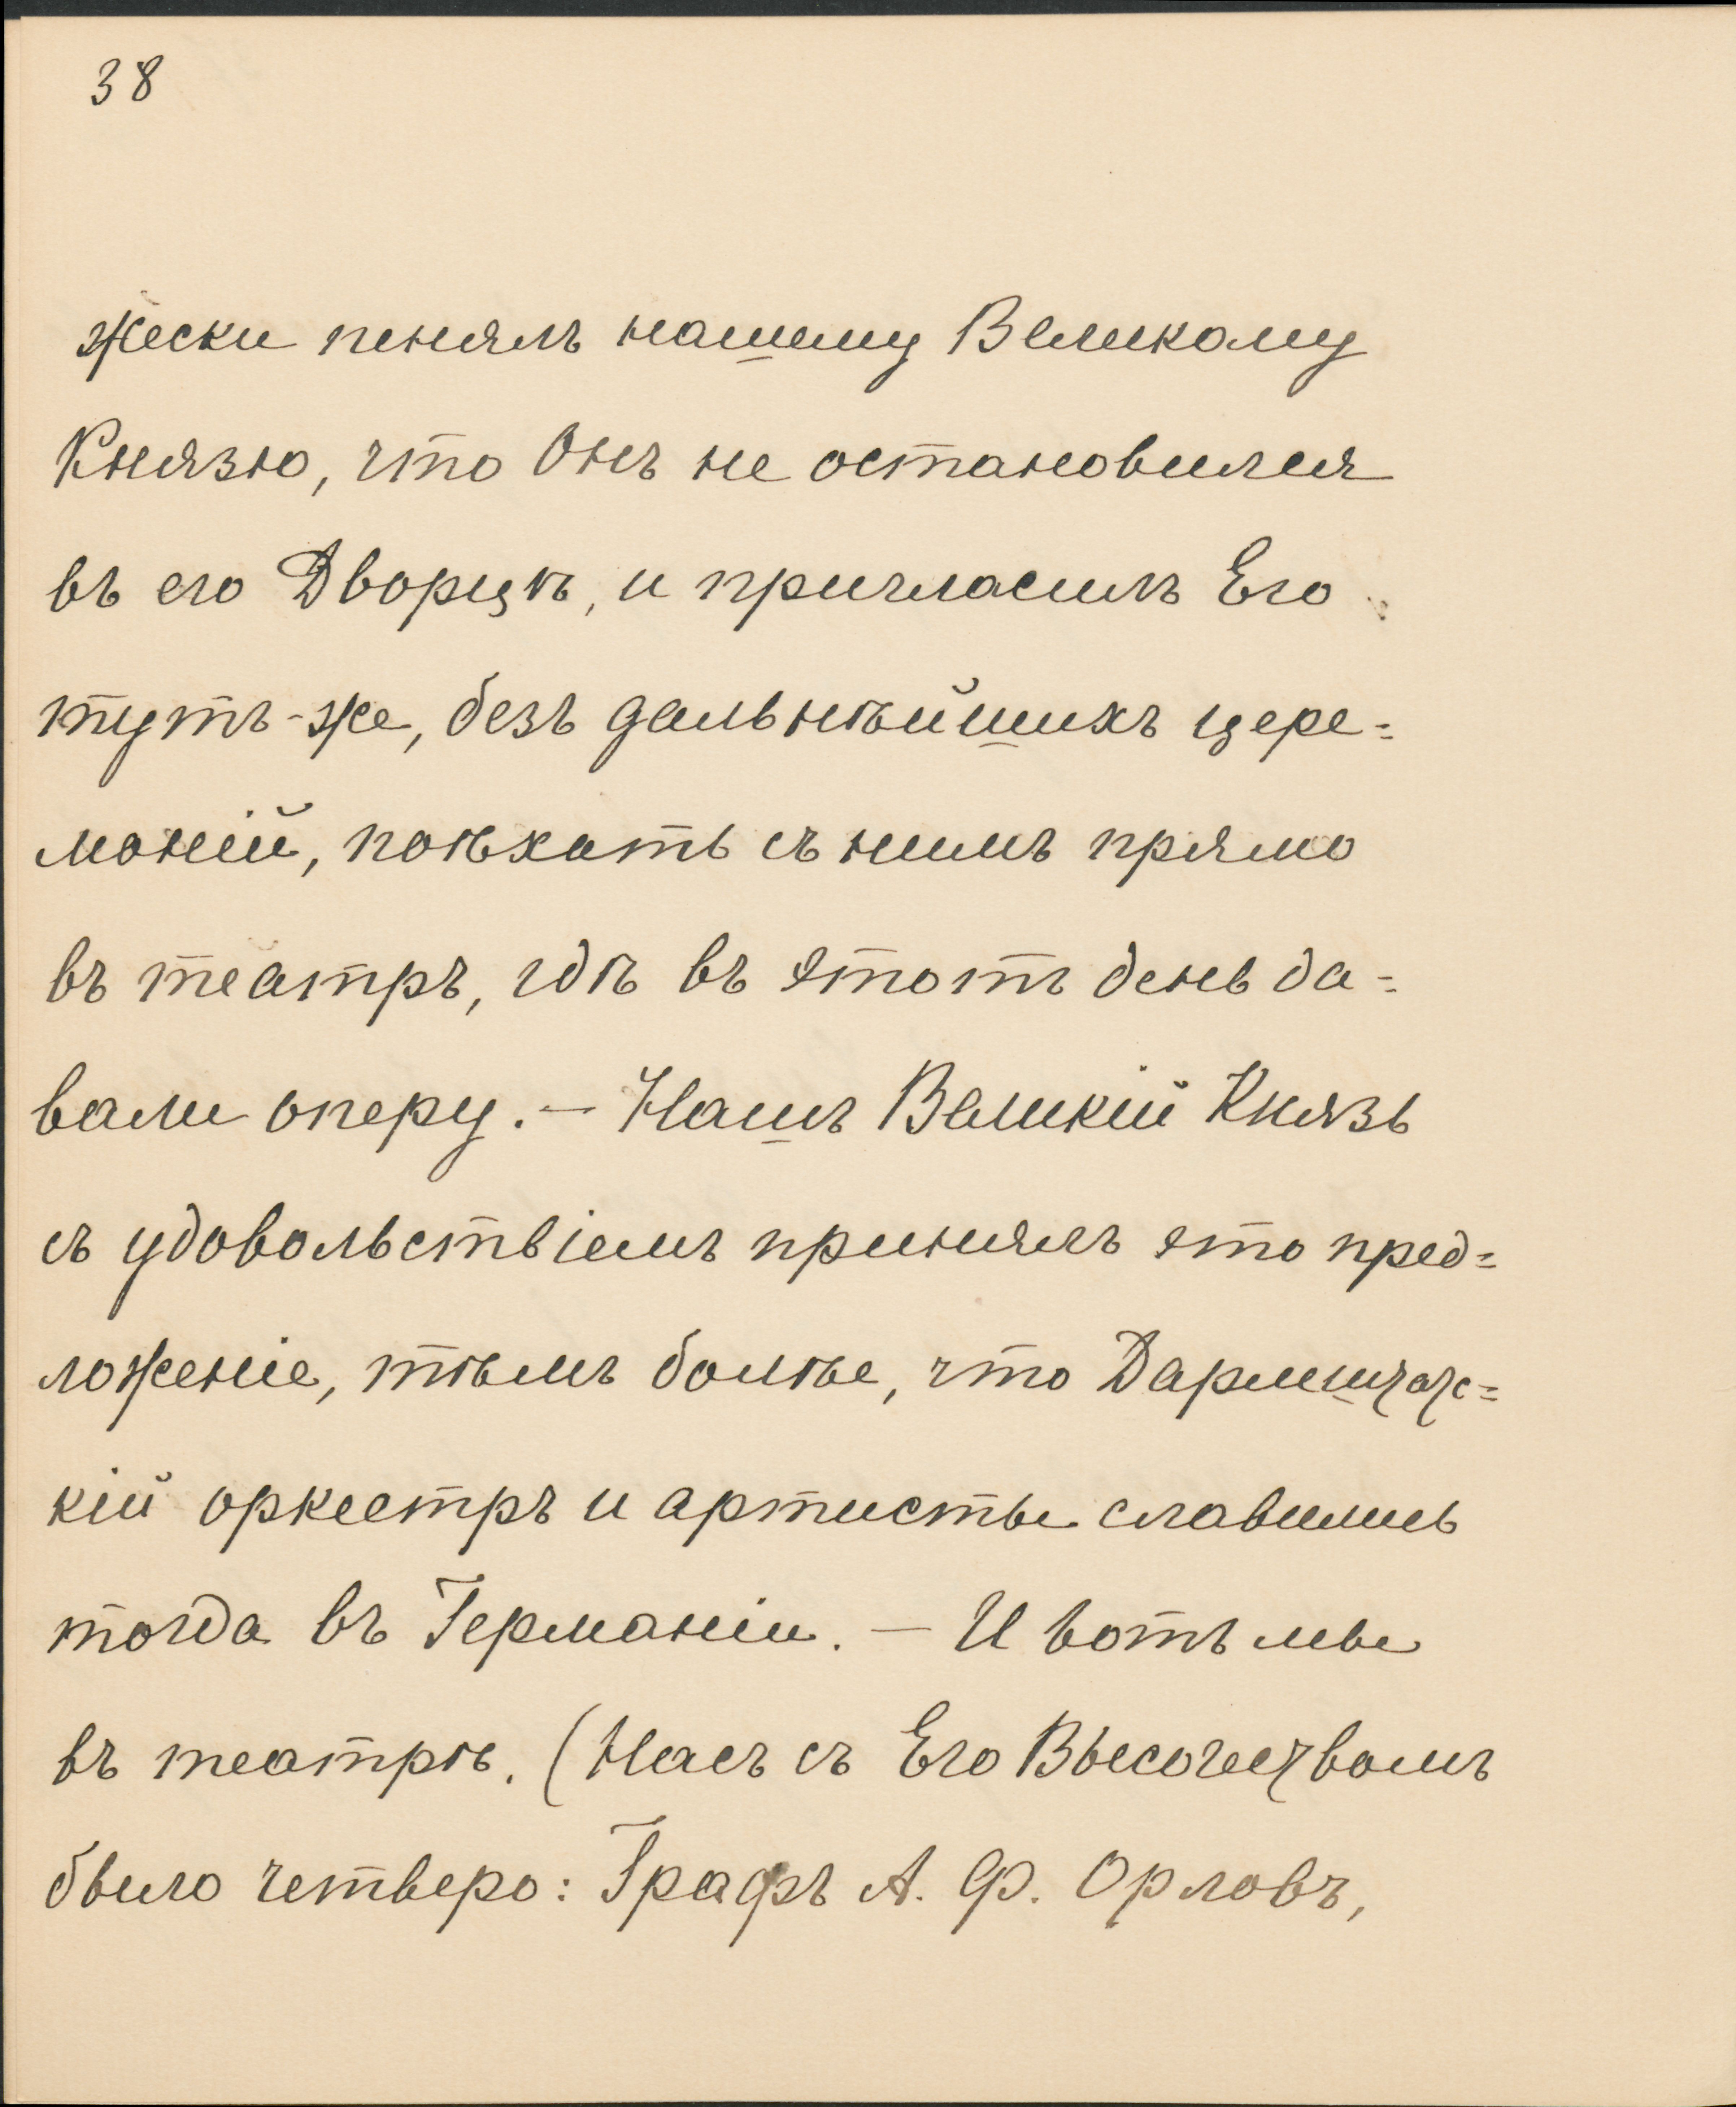 38
жески пенялъ нашему Великому
Князю, что Онъ не остановился
въ его Дворцѣ, и пригласилъ Его
тутъ-же, безъ дальнѣйшихъ цере=
моній, поѣхать съ нимъ прямо
въ театръ, гдѣ въ этотъ день да=
вали оперу. — Нашъ Великій Князь
съ удовольствіемъ принялъ это пред=
ложеніе, тѣмъ болѣе, что Дармштатс=
кій оркестръ и артисты славились
тогда въ Германіи. — И вотъ мы
въ театрѣ. (Насъ съ Его Высочествомъ
было четверо: Графъ А. Ф. Орловъ,